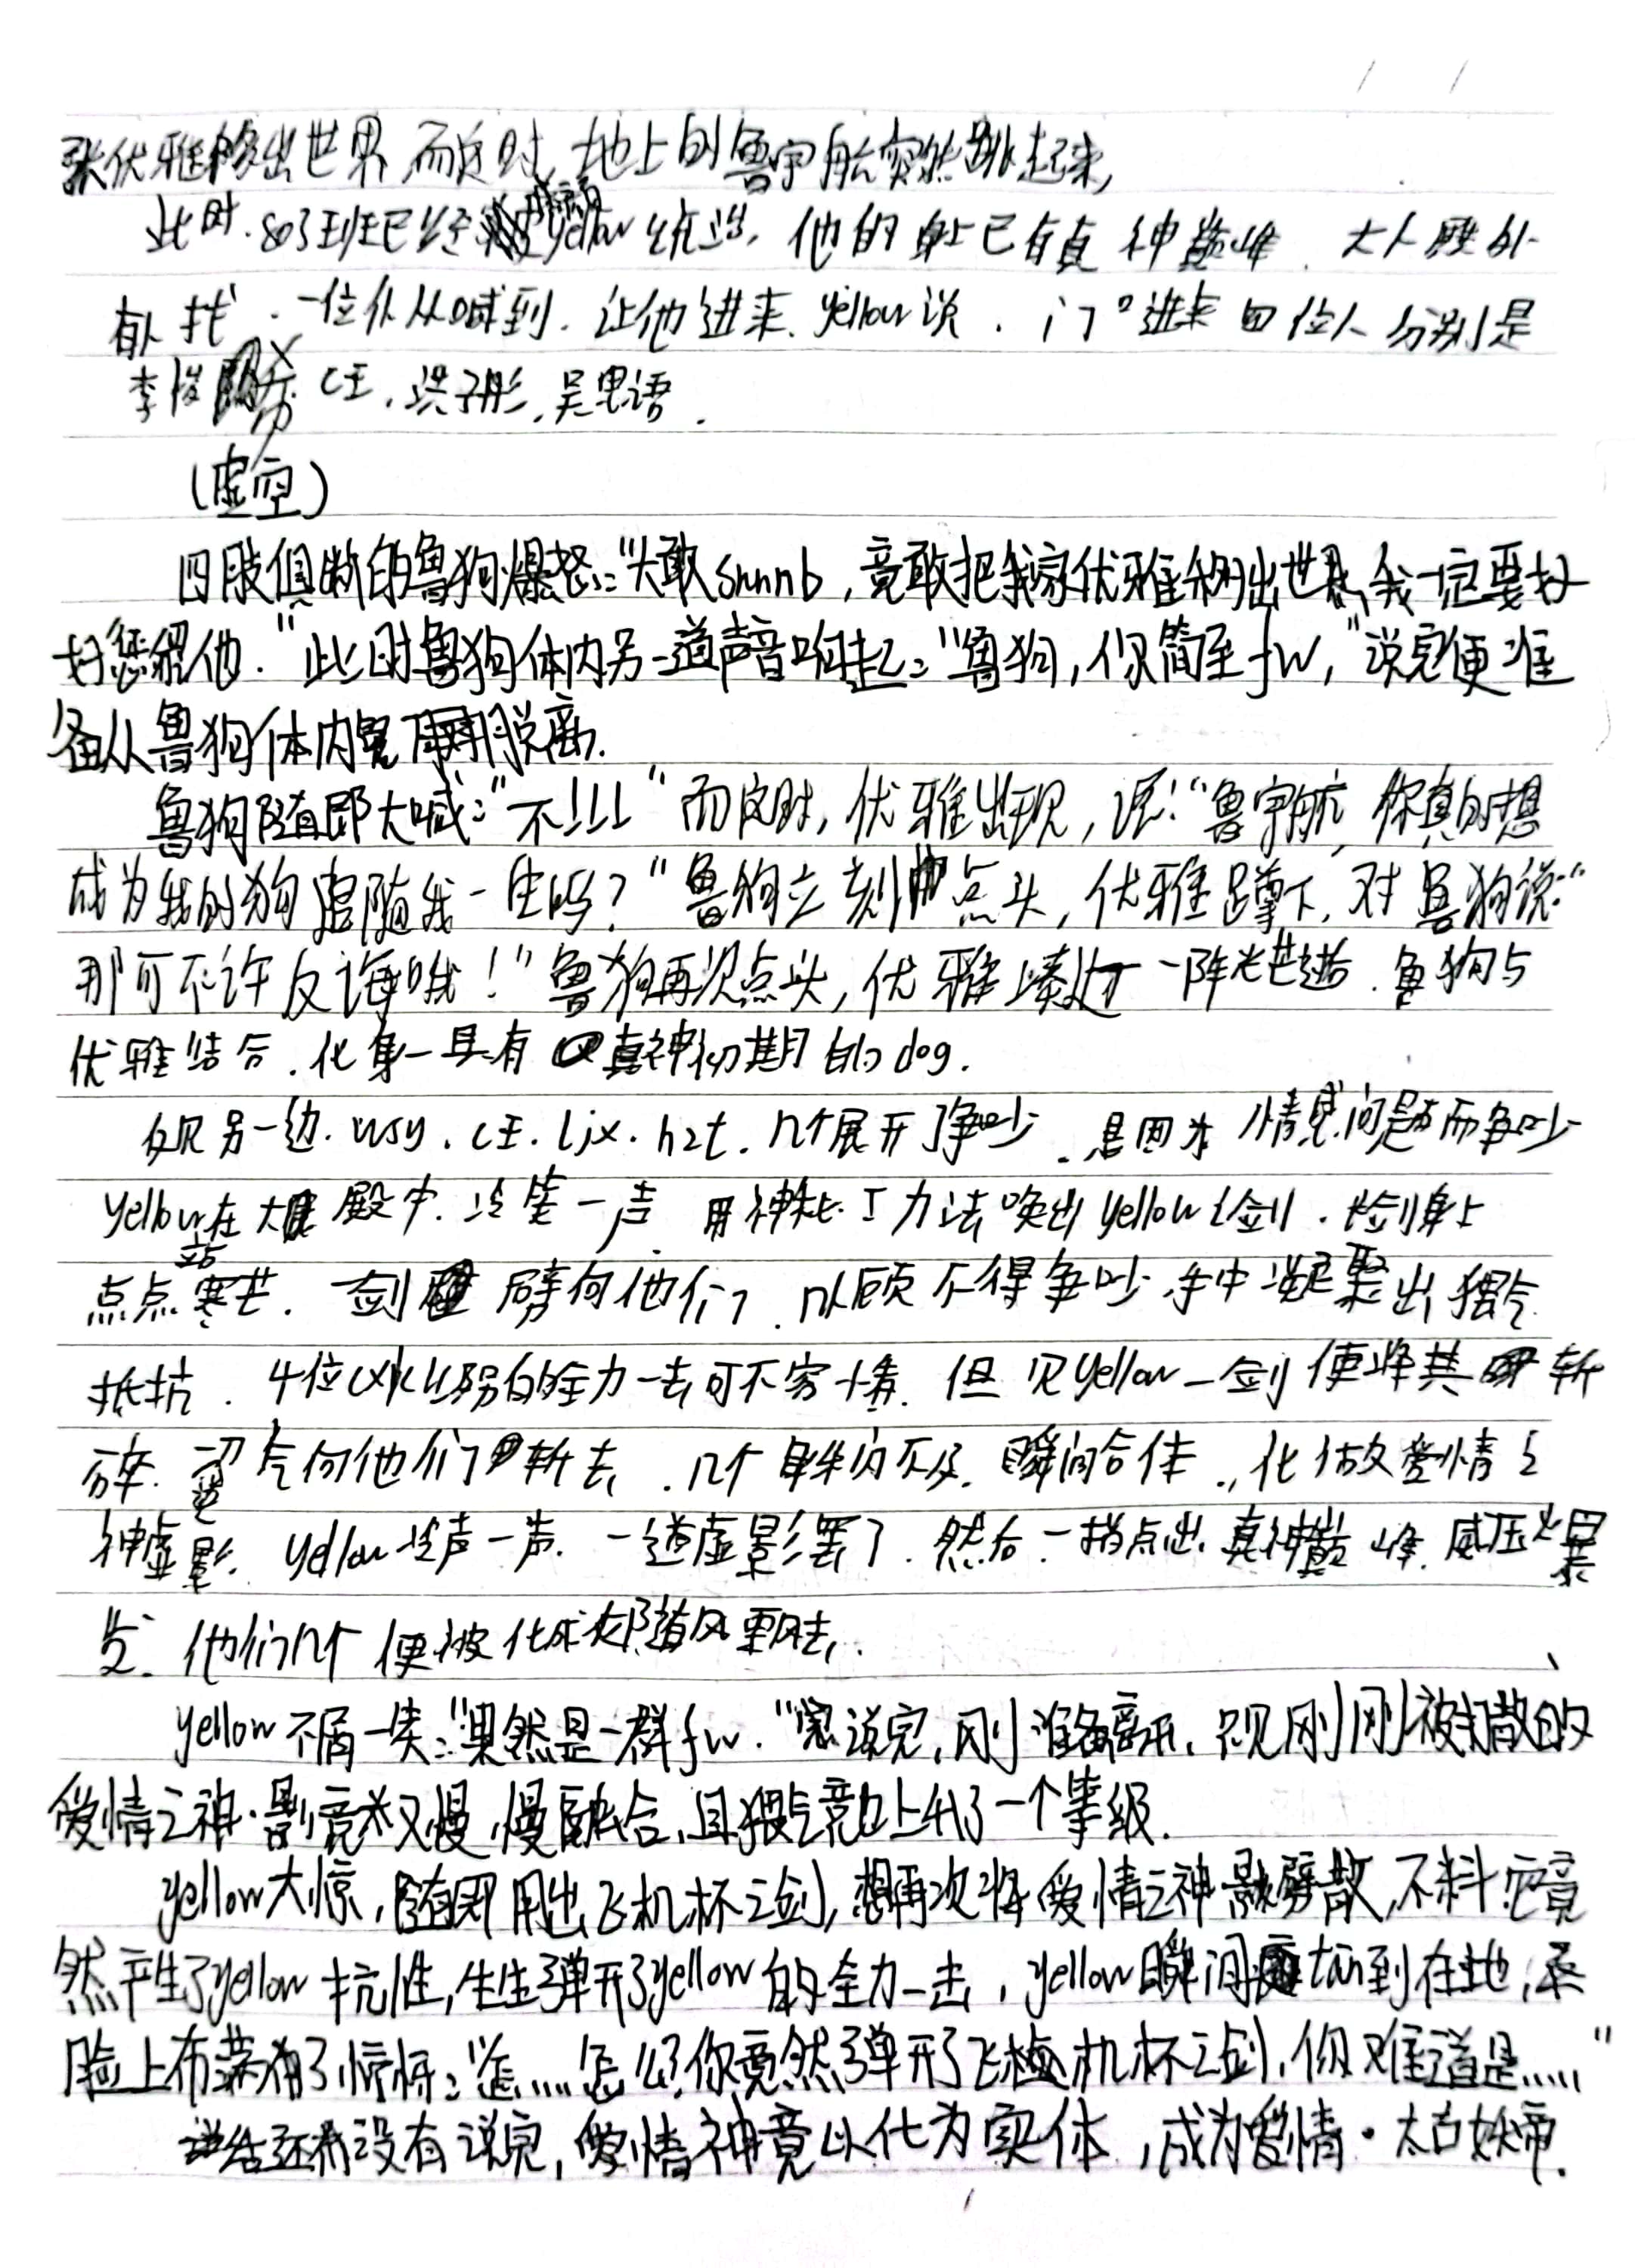 张优雅移出世界，而这时，地上的鲁宇航突然跳起来，
此时.803班已经被yellow统治.他的身上已有真神巅峰.大人殿外
有人找.一位仆从喊到.让他进来.yellow说.门口进来四位人分别是
李俊 CE.洪子彤.吴思语.
(虚空)
四肢俱断的鲁狗爆怒:"大敢smnnb,竟敢把我家优雅移出世界,我一定要好
好惩罚他."此时鲁狗体内另一道声音响起:"鲁狗,你简至fw,"说完便准
备从鲁狗体内脱离.
鲁狗随即大喊:"不!!!"而这时,优雅出现,说:"鲁宇航,你真的想
成为我的狗跟随我一生吗?"鲁狗立刻点头,优雅蹲下,对鲁狗说:"
那可不许反诲哦!"鲁狗再次点头,优雅一阵光芒过后.鲁狗与
优雅结合.化身一具有真神初期的dog.
只见另一边.wsy.CE.ljx.hzt.几个展开了争吵.是因为情感问题而争吵
yellow站在大殿中.冷笑一声.用神秘工力法唤出yellow之剑.剑身上
点点寒芒.一剑劈向他们.几人顾不得争吵.手中凝聚出猥气
抵抗.4位的全力一击可不容小看.但见yellow一剑便将其斩
碎.气向他们斩去.几个身躲闪不及.瞬间合体.化做爱情之
神虚影.yellow冷声一声.一道虚影罢了.然后一指点出.真神巅峰.威压爆
发.他们几个便被化成灰随风飘去.
yellow不屑一笑:"果然是一群fw."说完,刚准备离开,只见刚刚被打散的
爱情之神·影竟然又慢慢融合,且猥气竟上升了一个等级.
yellow大惊,随即用出飞机杯之剑,想再次将爱情之神影劈散,不料它竟
然产生了yellow抗性,生生弹开了yellow的全力一击,yellow瞬间到在地,
脸上布满了惊愕:"怎....怎么?你竟然弹开了飞机杯之剑,你难道是....."
话还没有说完,爱情神竟以化为实体,成为爱情·太古妖帝.